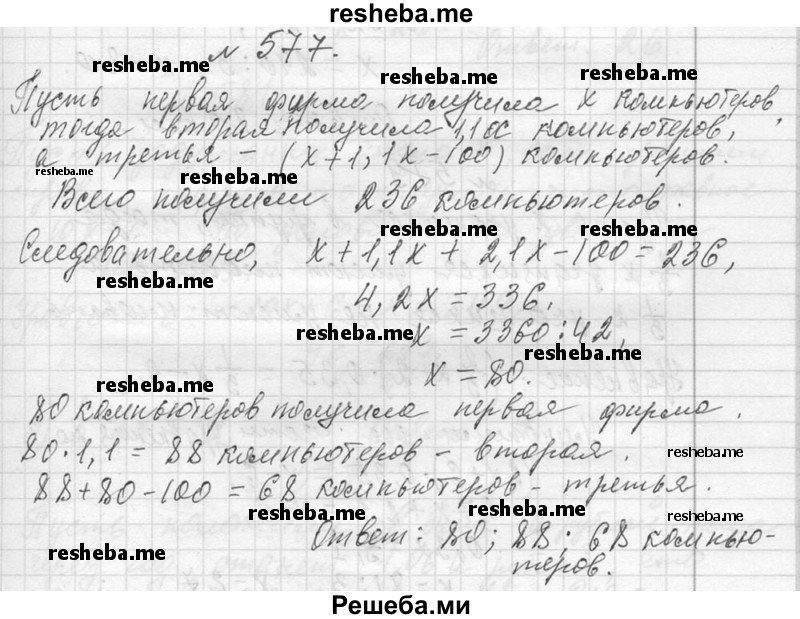 resheba.me
№ 577.
resheba.me resheba.me resheba.me
Пусть первая фирма получила х компьютеров,
resheba.me resheba.me
тогда вторая получила 1,1х компьютеров,
а третья – (х+1,1х–100) компьютеров.
resheba.me resheba.me resheba.me
Всего получили 236 компьютеров.
resheba.me resheba.me
Следовательно, х + 1,1х + 2,1х – 100 = 236,
resheba.me resheba.me
4,2х = 336,
resheba.me
х = 3360 : 42,
resheba.me
х = 80.
resheba.me
80 компьютеров получила первая фирма.
80 · 1,1 = 88 компьютеров – вторая.
resheba.me
88 + 80 – 100 = 68 компьютеров – третья.
resheba.me resheba.me resheba.me
Ответ: 80; 88; 68 компью-
resheba.me
теров.
Решеба.ми